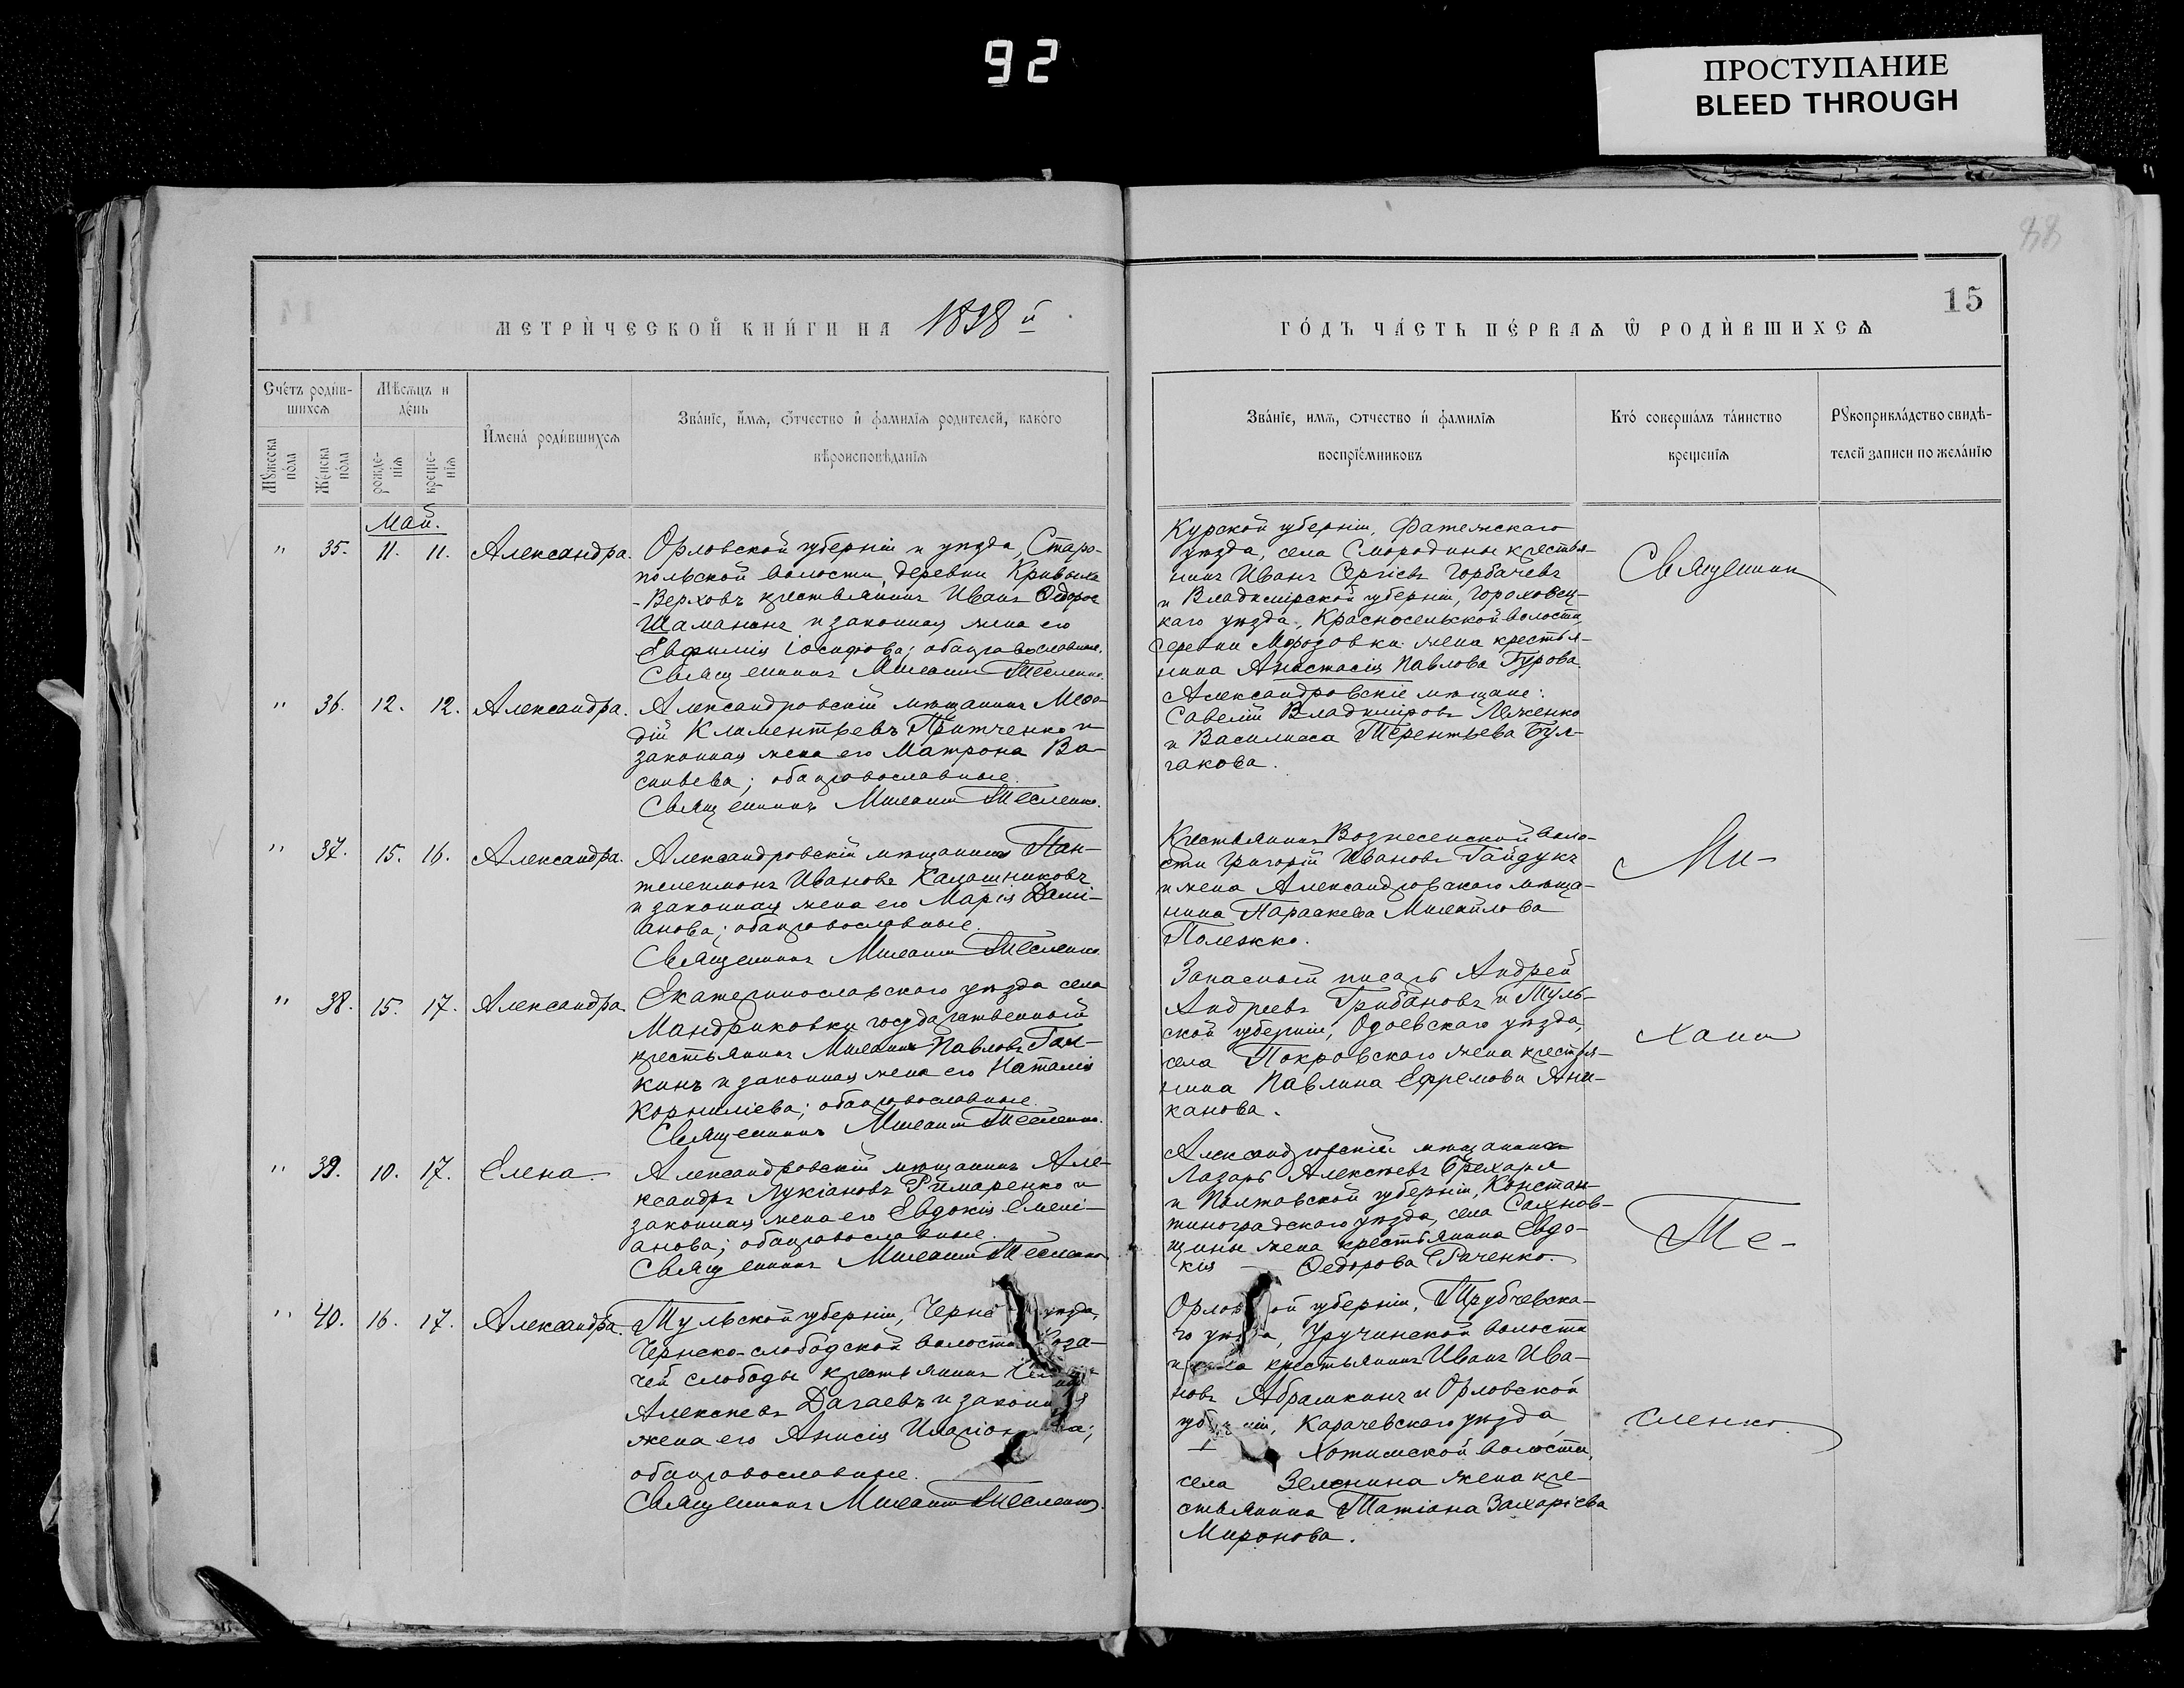 92
ПРОСТУПАНИЕ
BLEED THROUGH
88
15
МЕТРИЧЕСКОЙ КНИГИ НА 1898й
ГОДЪ ЧАСТЬ ПЕРВАЯ Ѿ РОДИВШИХСЯ
Счетъ родив-
шихся
Мѣсяцъ и
день
Имена родившихся
Званіе, имя, отчество и фамилія родителей, какого
вѣроисповѣданія
Мужеска
пола
Женска
пола
рожде-
нія
креще-
нія
Званіе, имя, отчество и фамилія
воспріемниковъ
Кто совершалъ таинство
крещенія
Рукоприкладство свидѣ-
телей записи по желанію
Май.
" 35. 11. 11. Александра.
Орловской губерніи и уѣзда, Старо-
польской волости, деревни Кривыхъ
-Верховъ крестьянинъ Иванъ Ѳедоровъ
Шаманинъ и законная жена его
Евфимія Іосифова; оба православные.
Священникъ Михаилъ Тесленко.
Курской губерніи, Фатежскаго
уѣзда, села Смородины крестья-
нинъ Иванъ Сергіевъ Горбачевъ
и Владимірской губерніи, Гороховец-
каго уѣзда, Красносельской волости,
деревни Морозовки жена крестья-
нина Анастасія Павлова Гурова.
" 36. 12. 12. Александра.
Александровскій мѣщанинъ Меѳо-
дій Климентьевъ Притченко и
законная жена его Матрона Ва-
сильева; оба православные.
Священникъ Михаилъ Тесленко.
Александровскіе мѣщане:
Савелій Владиміровъ Ляженко
и Василисса Терентьева Бул-
гакова.
" 37. 15. 16. Александра.
Александровскій мѣщанинъ Пан-
телеимонъ Ивановъ Калашниковъ
и законная жена его Марія Дамі-
анова; оба православные.
Священникъ Михаилъ Тесленко.
Крестьянинъ Вознесенской воло-
сти Григорій Ивановъ Гайдукъ
и жена Александровскаго мѣща-
нина Параскева Михайлова
Полежко.
" 38. 15. 17. Александра.
Екатеринославскаго уѣзда села
Мандриковки государственный
крестьянинъ Михаилъ Павловъ Ган-
кинъ и законная жена его Наталія
Корниліева; оба православные.
Священникъ Михаилъ Тесленко.
Запасный писарь Андрей
Андреевъ Грибановъ и Туль-
ской губерніи, Одоевскаго уѣзда,
села Покровскаго жена крестья-
нина Павлина Ефремова Ани-
канова.
" 39. 10. 17. Елена.
Александровскій мѣщанинъ Але-
ксандръ Лукіановъ Римаренко и
законная жена его Евдокія Емелі-
анова; оба православные.
Священникъ Михаилъ Тесленко
Александровскій мѣщанинъ
Лазарь Алексѣевъ Брехаря
и Полтавской губерніи, Констан-
тиноградскаго уѣзда, села Салѣнов-
щины жена крестьянина Евдо-
кія Ѳедорова Раченко.
" 40. 16. 17. Александра.
Тульской губерніи, Черн уѣзда,
Чернско-слободской волости Коза-
чей слободы крестьянинъ
Алексѣевъ Дагаевъ и законная
жена его Анисія Иларіонова;
оба православные.
Священникъ Михаилъ Тесленко.
Орловской губерніи, Трубчевска-
го уѣзда, Уручинской волости
и села крестьянинъ Иванъ Ива-
новъ Абрамкинъ и Орловской
губерніи, Карачевскаго уѣзда,
Хотимской волости,
села Зеленина жена кре-
стьянина Татіана Захаріева
Миронова.
Священник
Ми-
хаил
Те-
сленко